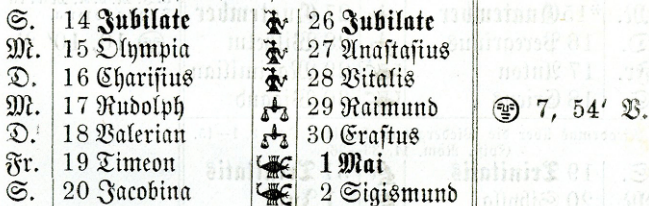 S. 14 Jubilate 26 Jubilate
M. 15 Olympia 27 Anastasius
D. 16 Charisius 28 Vitalis
M. 17 Rudolph 29 Raimund 7, 54' V.
D. 18 Valerian 30 Erastus
Fr. 19 Timeon 1 Mai
S. 20 Jacobina 2 Sigismund